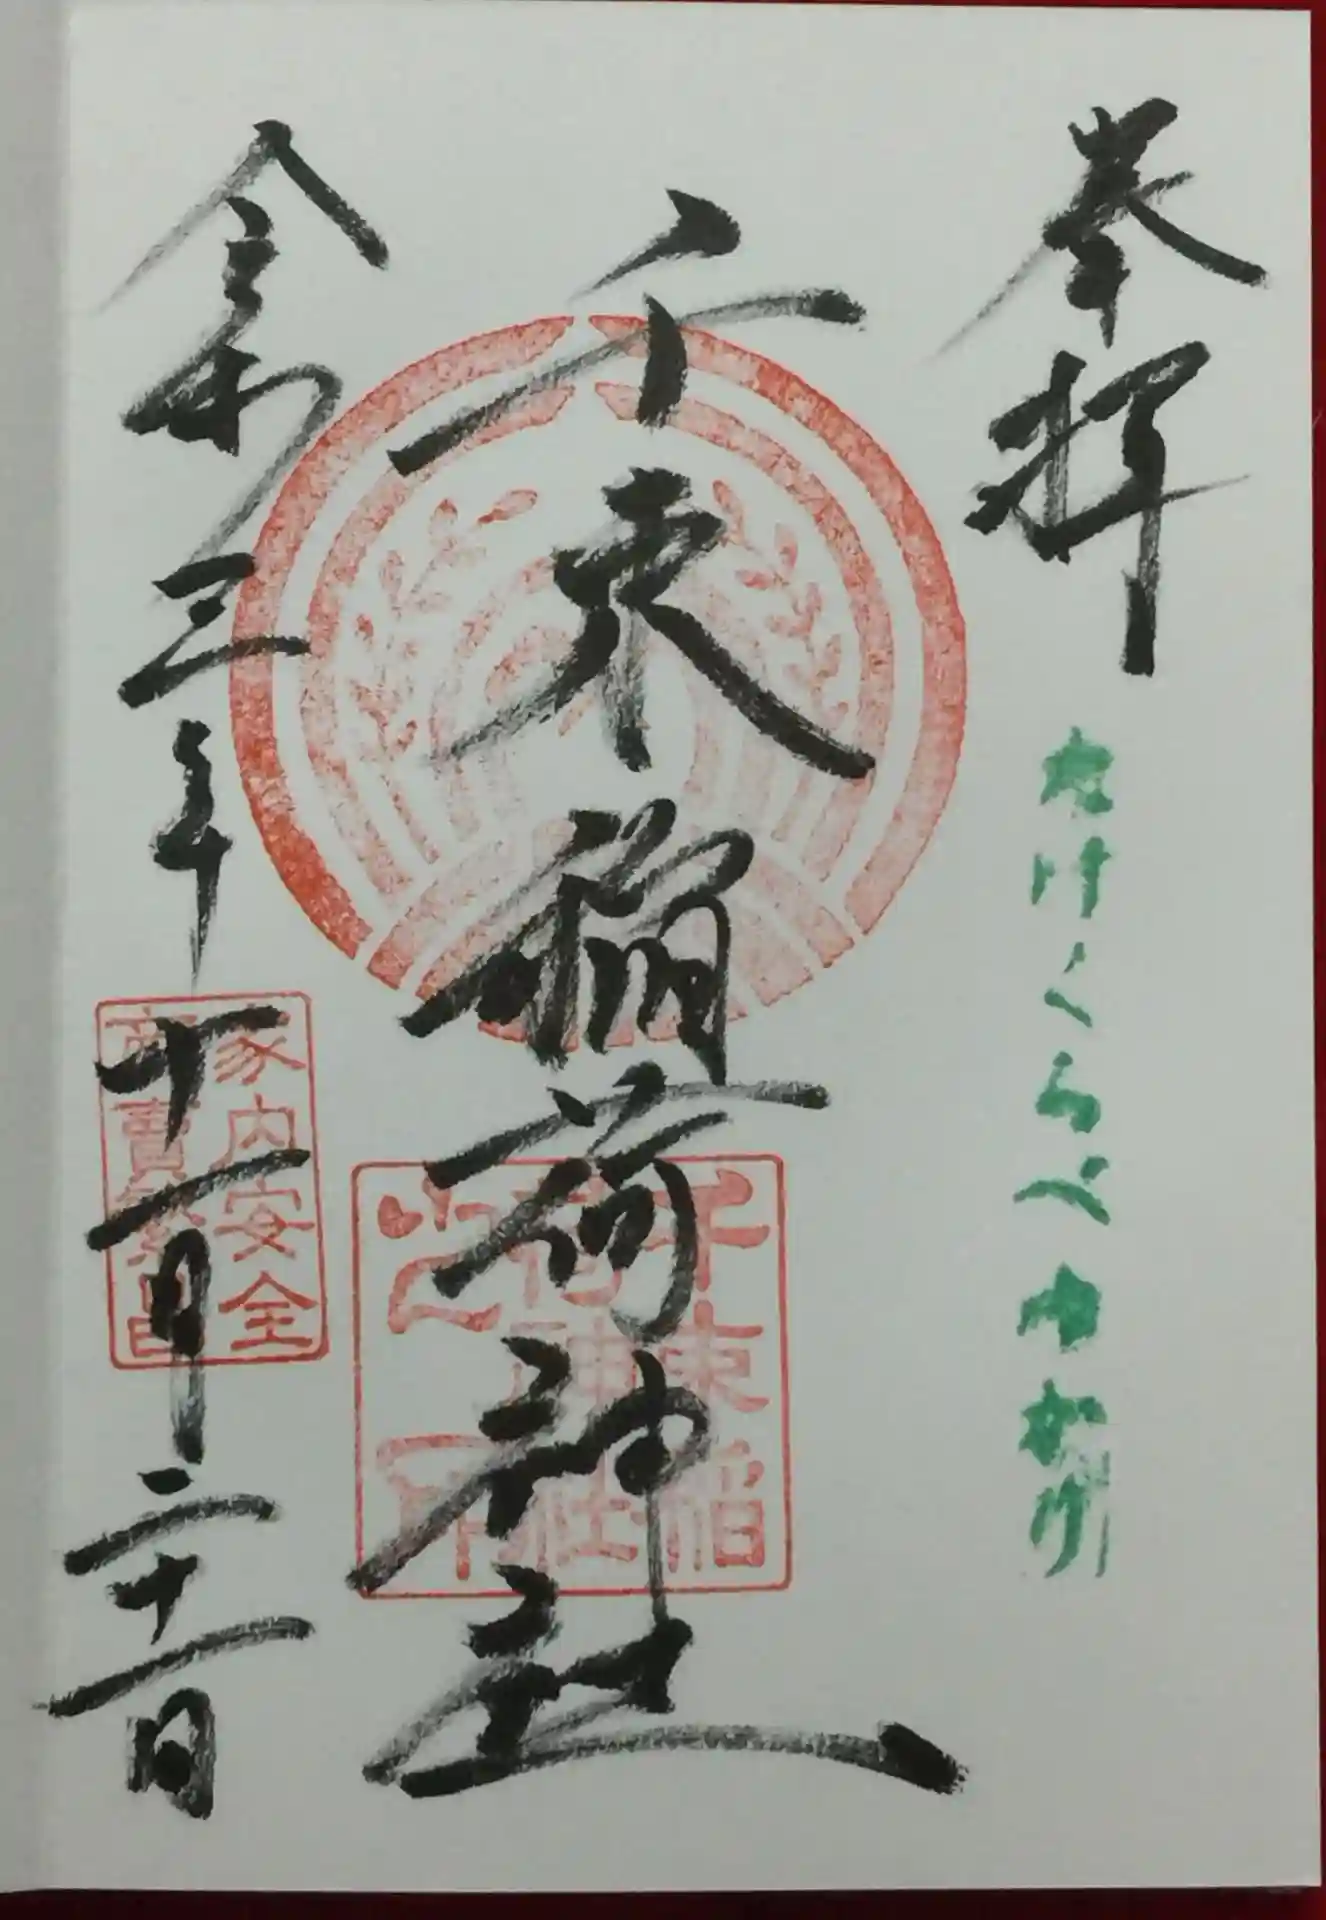 奉拝
たけくらべゆかり
千束稲荷神社
千束稲
荷神社
之印
令和三年十一月二十一日
家内安全
商賣繁昌